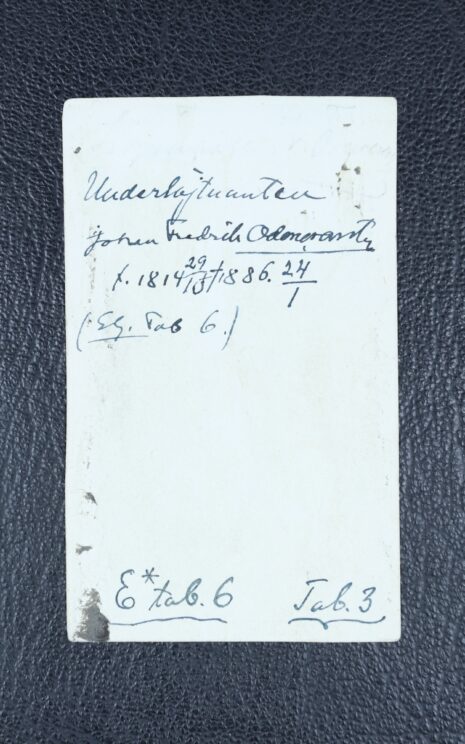 Underlöjtnanten
Johan Fredrik Odencrantz
f. 1814 29/10 † 1886. 24/1
(Elg. Tab 6.)
E* tab. 6 Tab. 3